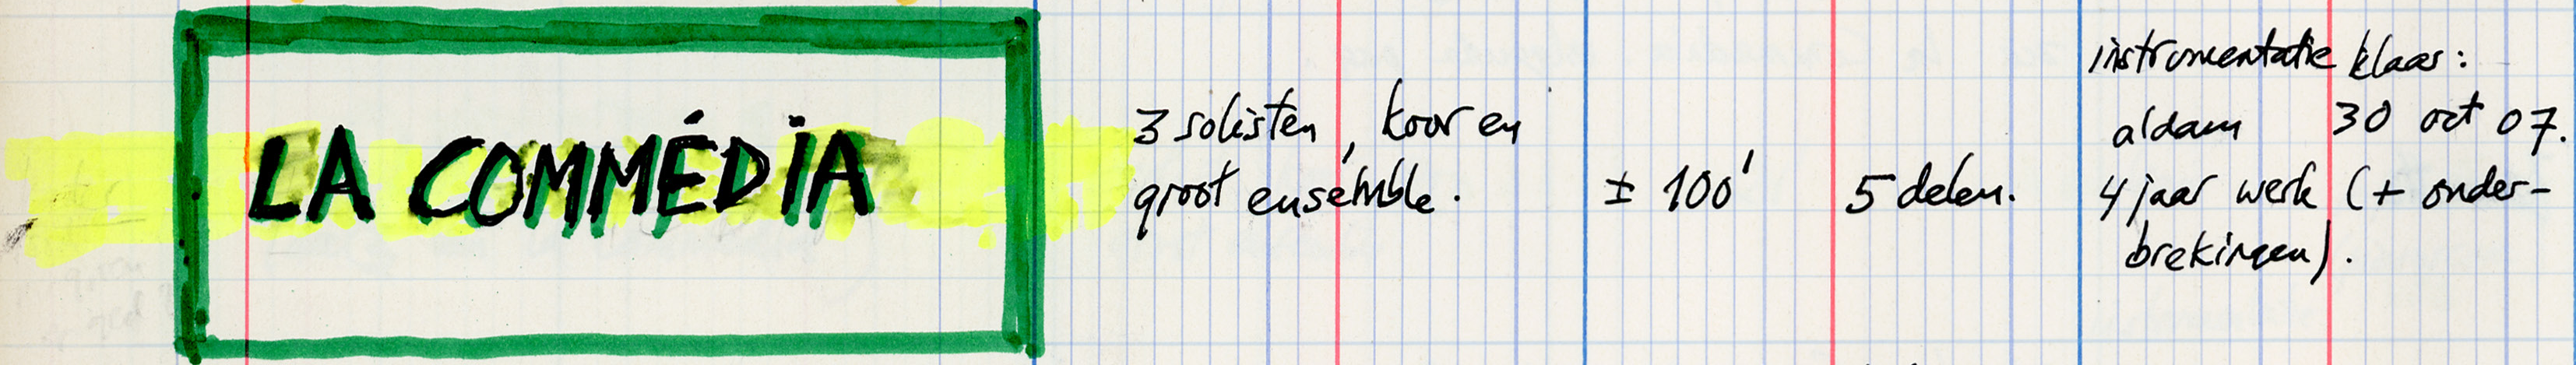 LA COMMÉDIA
3 solisten, koor en
groot ensemble.
± 100'
5 delen.
instrumentatie klaar:
a'dam 30 oct 07.
4 jaar werk (+ onder-
brekingen).